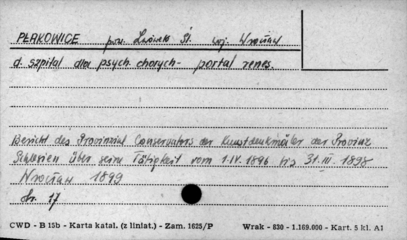 PŁAKOWICE pow. Lwówek Śl. woj. Wrocław
d. szpital dla psych. chorych - portal renes.
Bericht des Provinzial Conservators der Kunstdenkmäler der Provinz
Schlesien über seine Tätigkeit vom 1.IV.1896 bis 31.III.1898
Wrocław 1899
str. 17
CWD - B 15b - Karta katal. (z liniat.) - Zam. 1625/P Wrak - 830 - 1.169.000 - Kart. 5 kl. A1